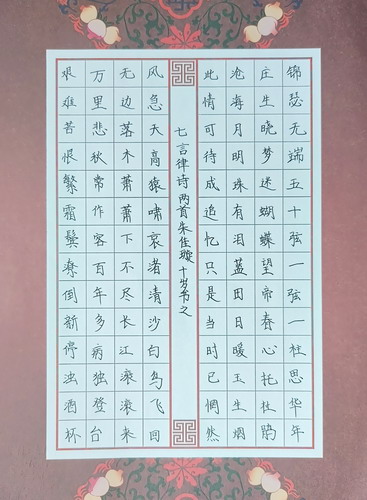 锦瑟无端五十弦一弦一柱思华年
庄生晓梦迷蝴蝶望帝春心托杜鹃
沧海月明珠有泪蓝田日暖玉生烟
此情可待成追忆只是当时已惘然
七言律诗两首朱佳璇十岁书之
风急天高猿啸哀渚清沙白鸟飞回
无边落木萧萧下不尽长江滚滚来
万里悲秋常作客百年多病独登台
艰难苦恨繁霜鬓潦倒新停浊酒杯